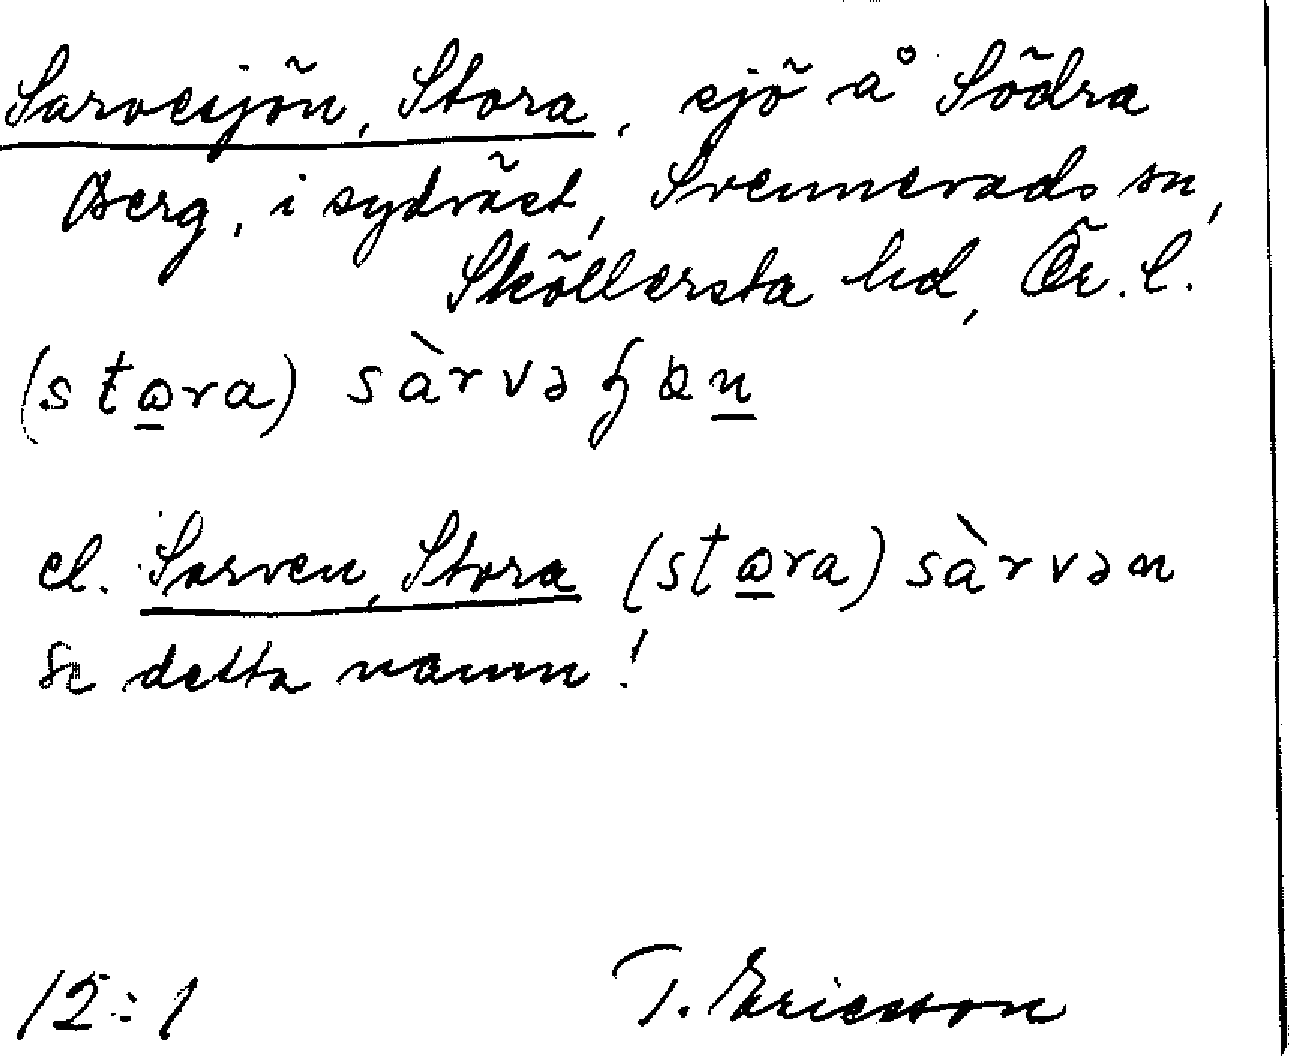 Sarvesjön, Stora, sjö å Södra
Berg, i sydväst, Svennevads sn,
Sköllersta hd, Ör. l.
(stⱺra) sàrvə
el. Sarven, Stora (stⱺra) sàrvən
Se detta namn!
12:1 T. Ericsson